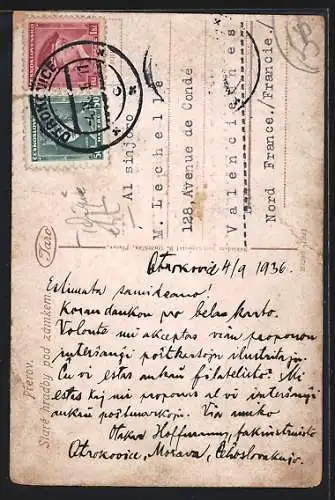 OTROKOVICE
ČESKOSLOVENSKO
Al sinjoro
M. Lechelle
128, Avenue de Condé
Valenciennes
Nord France./Francie.
Faro
Přerov.
Staré hradby pod zámkem.
Otrokovice 4/9 1936.
Estimata samideano!
Koran dankon pro bela karto.
Volonte mi akceptas vian proponon
interŝanĝi poŝtkartojn ilustritajn.
Ĉu vi estas ankaŭ filatelisto? Mi
estas kaj mi proponas al vi interŝanĝi
ankaŭ poŝtmarkojn. Via amiko
Otakar Hoffmann,
Otrokovice, Morava, Ĉeĥoslovakujo.